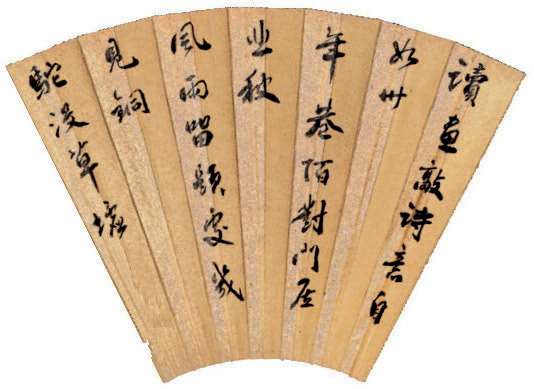 讀畫敲詩意自
如卅
年巷陌對門居
秋
風雨留題處幾
見銅
駝沒草墟